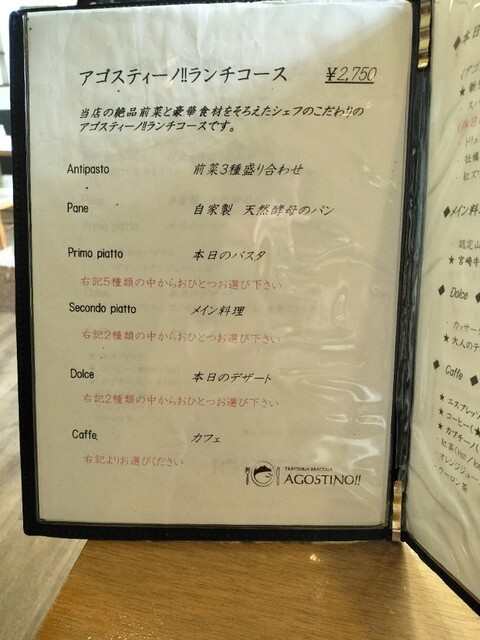 アゴスティーノ!!ランチコース ¥2,750
当店の絶品前菜と豪華食材をそろえたシェフのこだわりの
アゴスティーノ!!ランチコースです。
Antipasto 前菜3種盛り合わせ
Pane 自家製 天然酵母のパン
Primo piatto 本日のパスタ
右記5種類の中からおひとつお選び下さい
Secondo piatto メイン料理
右記2種類の中からおひとつお選び下さい
Dolce 本日のデザート
右記2種類の中からおひとつお選び下さい
Caffe. カフェ
右記よりお選びください
TRATTORIA BRACERIA
AGOSTINO!!
◆本日
(アゴ
★
・トリュ
・牡蠣
・紅ズ
◆メイン料
・認定山
★宮崎牛
◆ Dolce ◆
・カッサータ
★大人のテ
◆ Caffe ◆
★エスプレッソ
★コーヒー(★
★カプチーノ(
紅茶(Hot/Ice
オレンジジュー
ウーロン茶